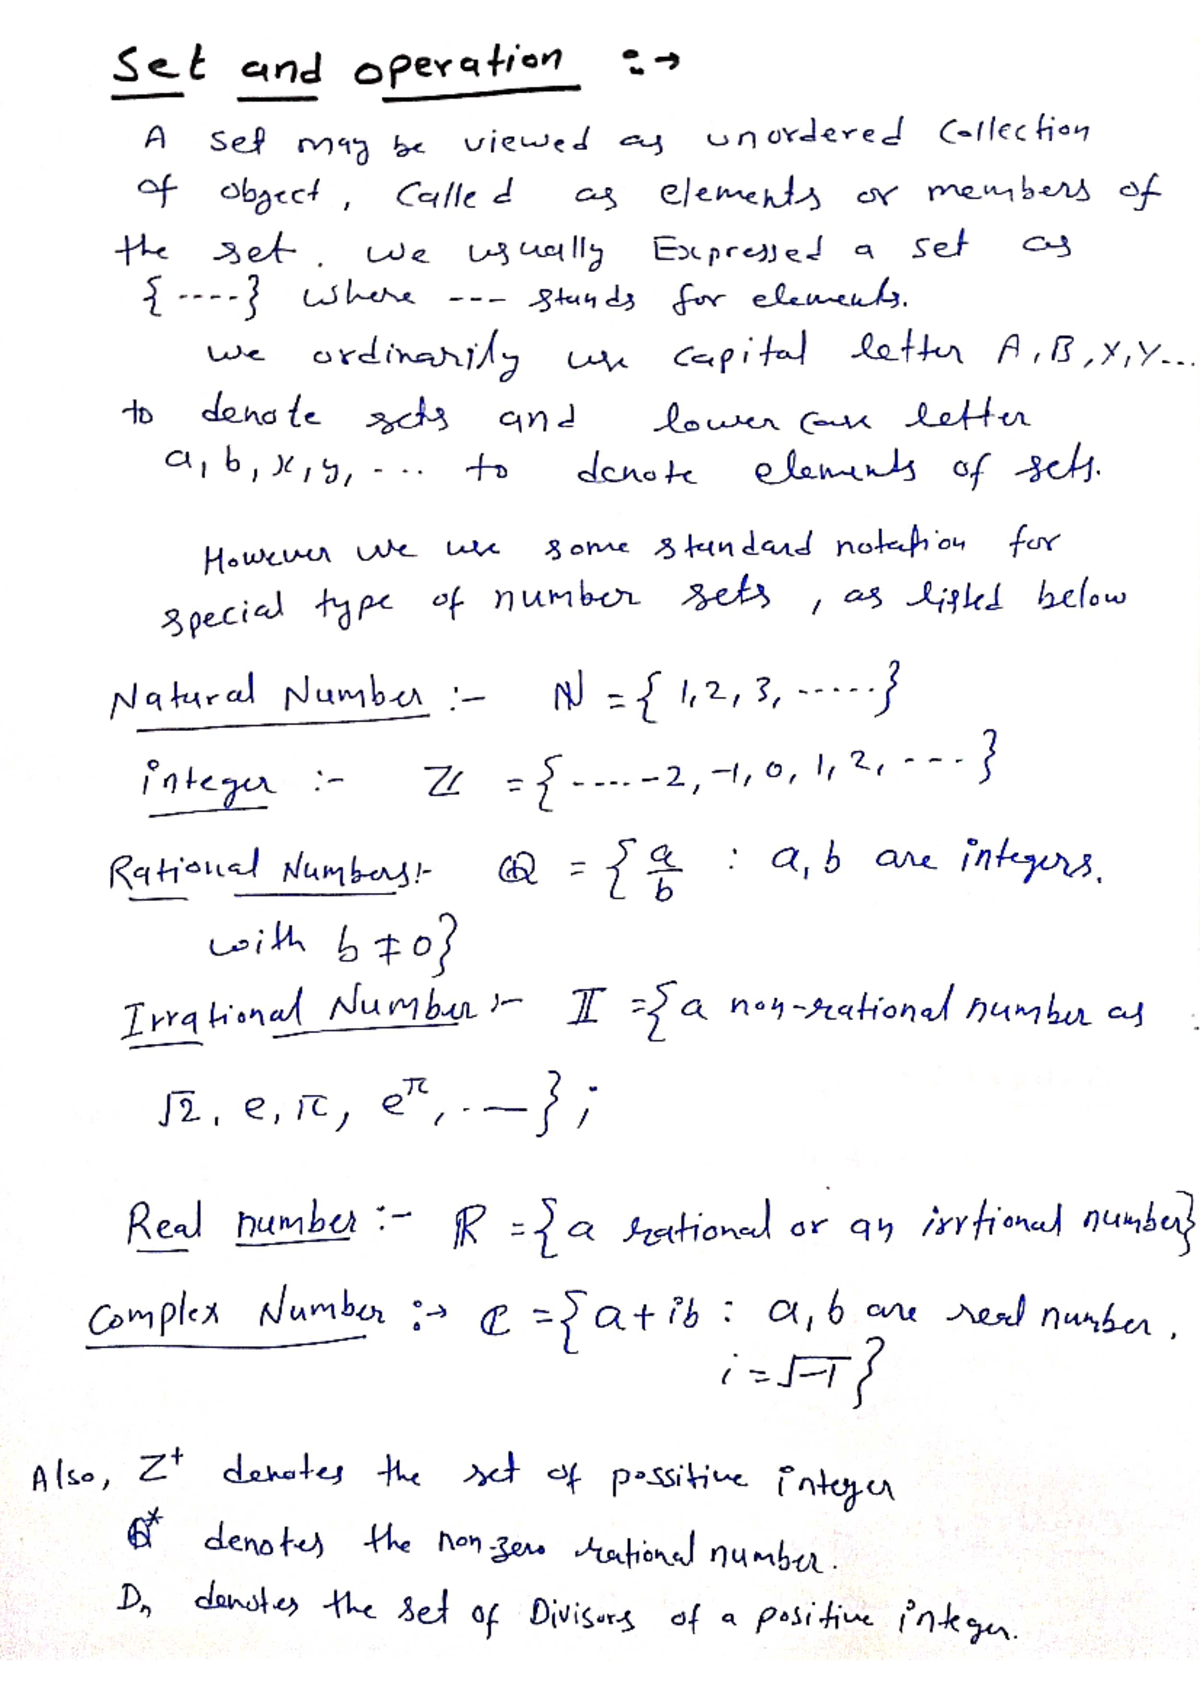 Set and operation :→
A set may be viewed as unordered Collection
of object, Called as elements or members of
the set. we usually Expressed a set as
{ ----} where --- stands for elements.
we ordinarily use capital letter A, B, X, Y...
to denote sets and lower case letter
a, b, x, y, - ... to denote elements of sets.
However we use some standard notation for
special type of number sets, as listed below
Natural Number :- ℕ = { 1, 2, 3, ------}
integer :- ℤ = { ---- -2, -1, 0, 1, 2, ---- }
Rational Numbers:- ℚ = { a/b : a, b are integers.
with b ≠ 0}
Irrational Number :- 𝕀 = { a non-rational number as :
√2, e, π, e^π, ..— } ;
Real number :- ℝ = { a rational or an irrtional number}
Complex Number :→ ℂ = { a + ib : a, b are real number,
i = √-1 }
Also, Z⁺ denotes the set of possitive integer
ℚ* denotes the non-zero rational number.
Dₙ denotes the set of Divisors of a positive integer.